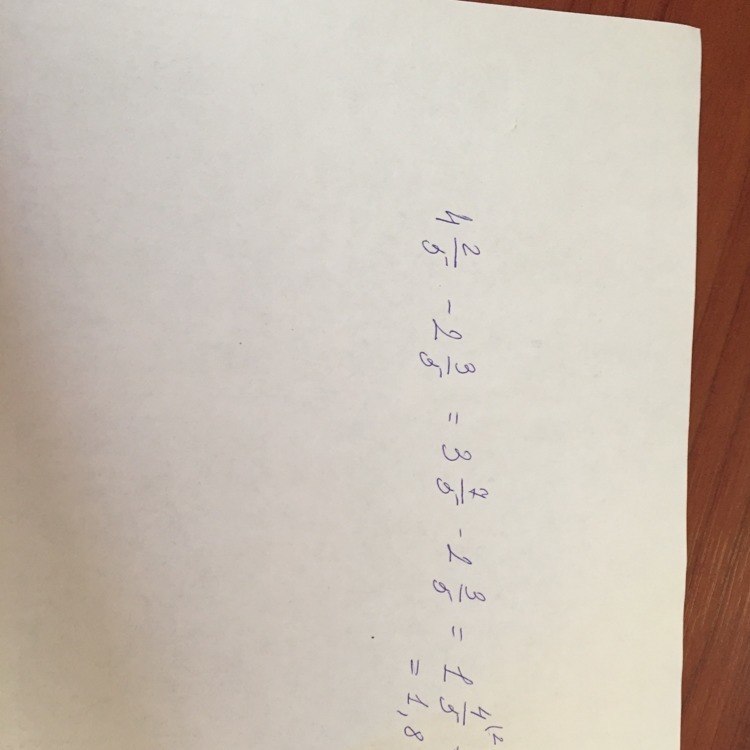 4 2/5 - 2 3/5 = 3 7/5 - 2 3/5 = 1 4/5 (2
= 1,8